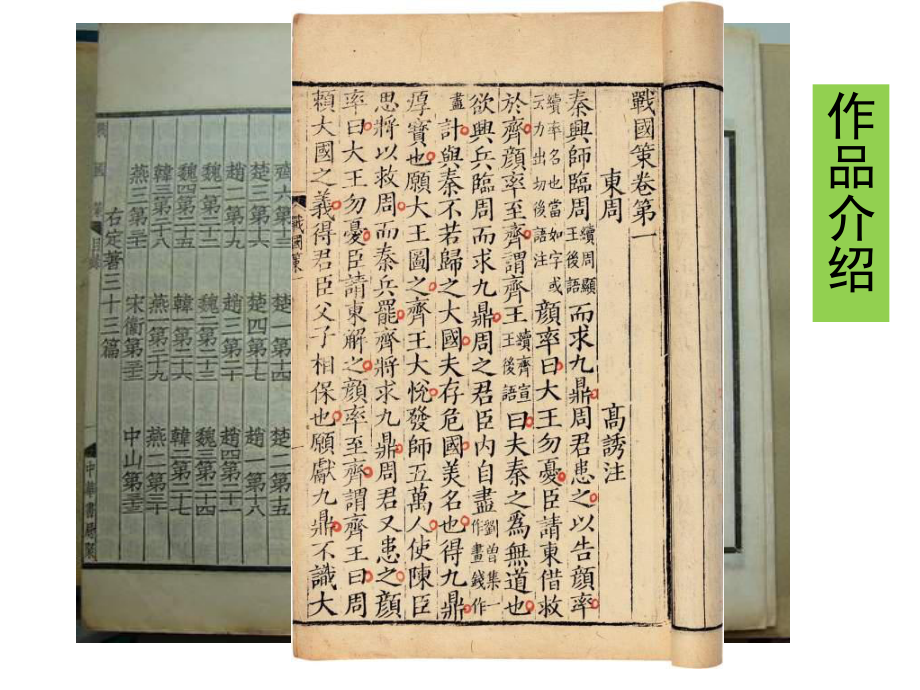 作品介绍
戰國策卷第一
東周 高誘注
秦興師臨周續周顯王後語而求九鼎周君患之以告顔率
續率名也當如字或云力出切後語注顔率曰大王勿憂臣請東借救
於齊顔率至齊謂齊王續齊宣王後語曰夫秦之爲無道也
欲興兵臨周而求九鼎周之君臣内自盡劉曽集一作畫錢作
盡計與秦不若歸之大國夫存危國美名也得九鼎
厚寳也願大王圖之齊王大悅發師五萬人使陳臣
思將以救周而秦兵罷齊將求九鼎周君又患之顔
率曰大王勿憂臣請東解之顔率至齊謂齊王曰周
賴大國之義得君臣父子相保也願獻九鼎不識大
戰國策
一
齊六第十三 楚一第十四 楚二第十五
楚三第十六 楚四第十七 趙一第十八
趙二第十九 趙三第二十 趙四第二十一
魏一第二十二 魏二第二十三 魏三第二十四
魏四第二十五 韓一第二十六 韓二第二十七
韓三第二十八 燕一第二十九 燕二第三十
燕三第三十一 宋衛第三十二 中山第三十三
右定著三十三篇
目錄
中華書局聚